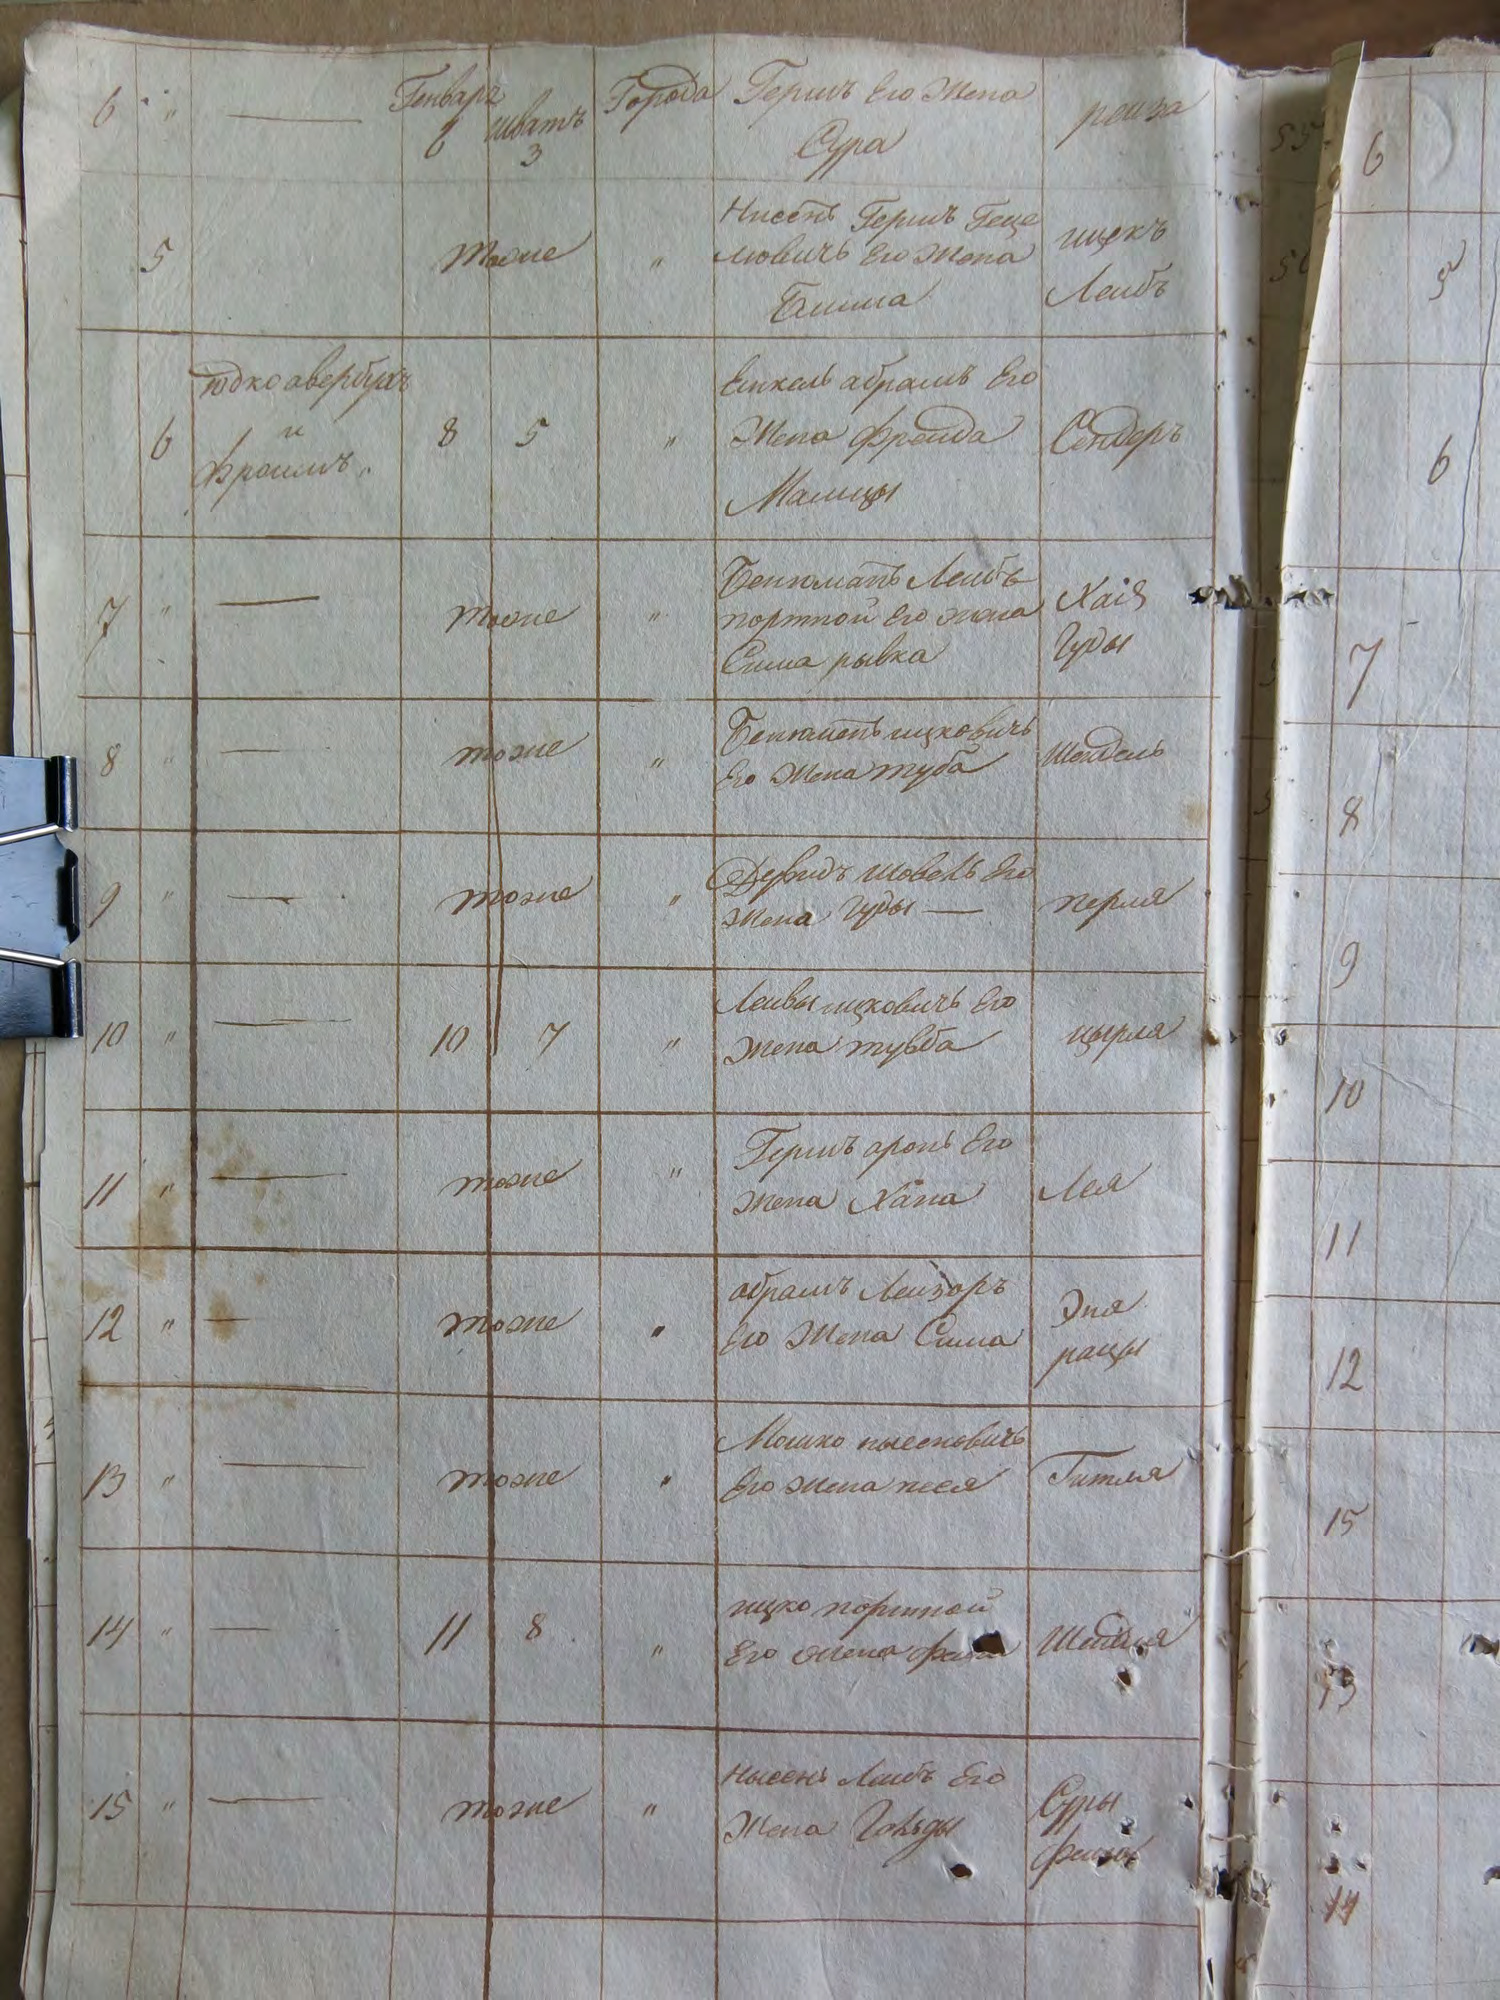 6 " — Генваря 6 шватъ 3 Города Гершъ Его Жена Сура реиза
5 тоже " Нисенъ Гершъ Геце
лювичъ Его Жена
Бишма
ицекъ
Леибъ
6 юдко авербухъ
и
Фроимъ
8 5 "
Енкель абрамъ Его
Жена Фреида
Малицы
Сендеръ
7 " — тоже "
Лейбъ
портной Его жена
Сима рывка
Хаія
Гуды
8 " — тоже "
ицковичъ
Его Жена туба
Шендель
9 " — тоже "
Девидъ шовель Его
Жена Гуды —
перля
10 " — 10 7 "
Леивы ицковичъ Его
Жена тувба
цырля
11 " — тоже "
Гершъ аронъ Его
Жена Хана
Лея
12 " — тоже "
абрамъ Леизоръ
Его Жена Сима
Эня
рацы
13 " — тоже "
Мошко нысеновичъ
Его жена песя
Гитля
14 " — 11 8 "
ицко портной
Его жена
15 " — тоже "
Нысенъ Леибъ Его
Жена Гольды
Суры
6
5
6
7
8
9
10
11
12
15
13
14